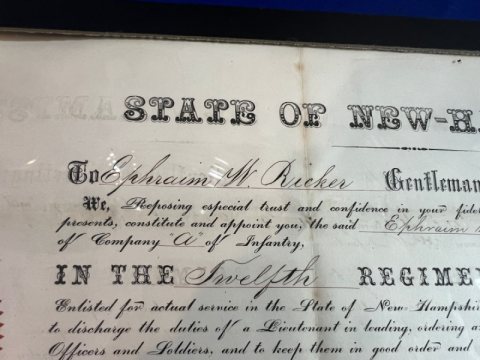 STATE OF NEW-H
To Ephraim W. Ricker Gentleman
We, Reposing especial trust and confidence in your fidel
presents, constitute and appoint you, the said Ephraim
of Company "A" of Infantry,
IN THE Twelfth REGIME
Enlisted for actual service in the State of New Hampshire
to discharge the duties of a Lieutenant in leading, ordering a
Officers and Soldiers, and to keep them in good order and